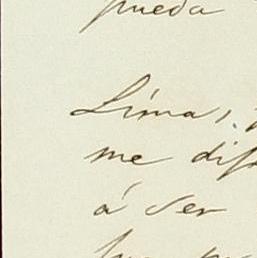 pueda
Lima,
me
á ser